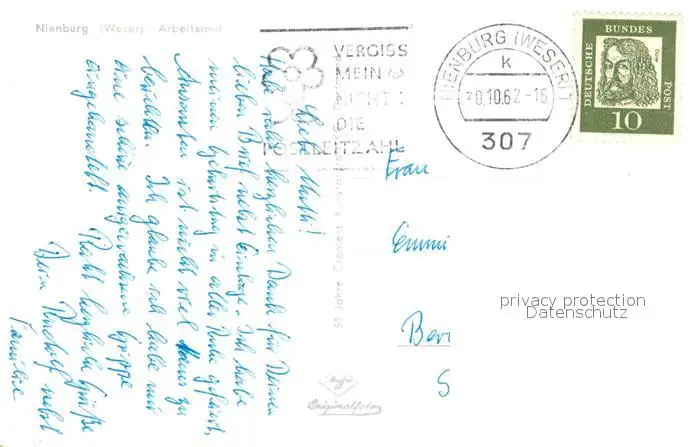 Nienburg (Weser). Arbeitsamt
VERGISS
MEIN
NICHT
DIE
POSTLEITZAHL
NIENBURG (WESER) 1
k
10.62-16
307
DEUTSCHE BUNDES POST
Dürer
10
Liebe Mutti!
Hab recht herzlichen Dank für Deinen
lieben Brief nebst Einlage. Ich habe
meinen Geburtstag in aller Ruhe gefeiert.
Ansonsten ist nicht viel Neues zu
berichten. Ich glaube ich habe mir
eine schöne ausgewachsene Grippe
eingehandelt.
Recht herzliche Grüße
Dein Rudolf nebst
Familie
50 Jahre Cramers Kunstanstalt
Agfa
Originalfoto
Frau
Emmi
Ber
S
privacy protection
Datenschutz